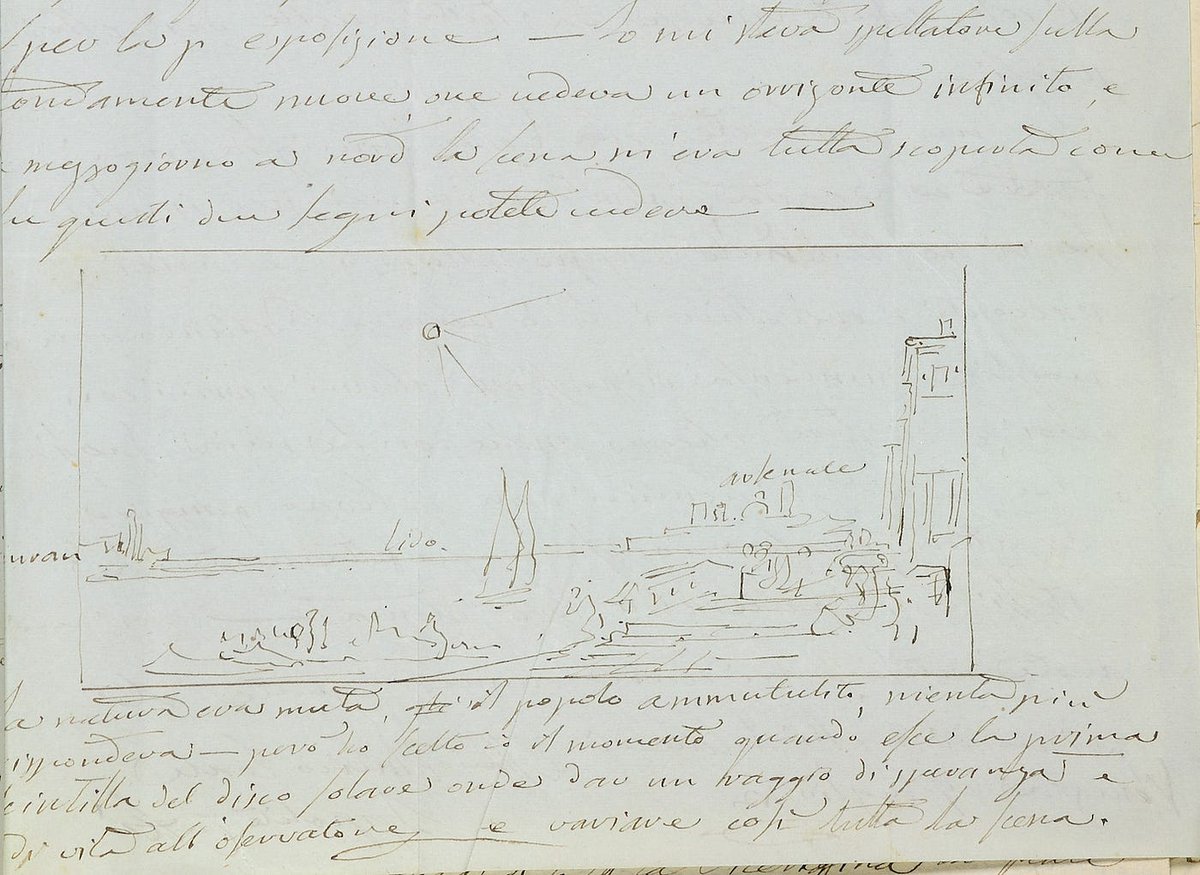 per la p esposizione — Io mi stava spettatore sulla
ondamente nuove ove vedeva un orrizonte infinito, e
mezzogiorno a nord la scena mi era tutta scoperta come
questi due segni potete vedere —
arsenale
lido.
muran
la natura era muta, il popolo ammutulito, nienta più
rispondeva — però ho scelto io il momento quando esce la prima
scintilla del disco solare onde dar un raggio di speranza e
di vita all'osservatore e variare così tutta la scena.